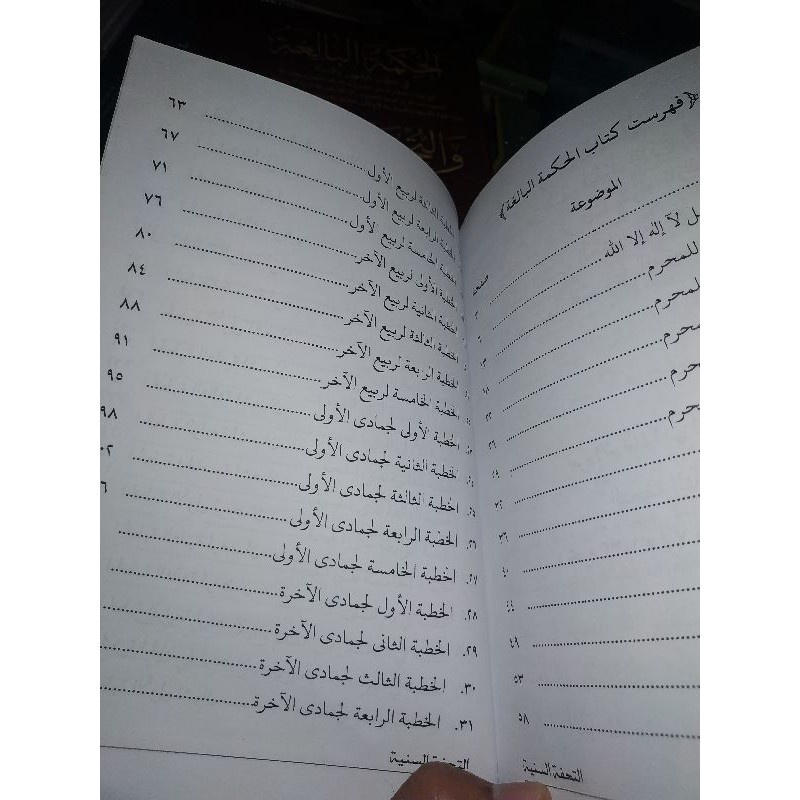 الحكمة البالغة
﴿فهرست كتاب الحكمة البالغة﴾
الموضوعة
صفحة
لآ إله إلا الله
٢
للمحرم
٦
لمحرم
١٣
محرم
١٨
حرم
٢٢
حرم
٢٦
٣٤
٣٦
٤٠
٤٤
٤٩
٥٣
٥٨
التحفة السنية
لربيع الأول ٦٣
الرابعة لربيع الأول ٦٧
الخامسة لربيع لأول ٧١
الأولى لربيع الآخر ٧٦
الخطبة الثانية لربيع الآخر ٨٠
الخطبة الثالثة لربيع الآخر ٨٤
الخطبة الرابعة لربيع الآخر ٨٨
الخطبة الخامسة لربيع الآخر ٩١
الخطبة الأولى لجمادى الأولى ٩٥
الخطبة الثانية لجمادى الأولى ٩٨
٢٥. الخطبة الثالثة لجمادى الأولى ٠٢
٢٦. الخطبة الرابعة لجمادى الأولى ٦
٢٧. الخطبة الخامسة لجمادى الأولى
٢٨. الخطبة الأول لجمادى الآخرة
٢٩. الخطبة الثانى لجمادى الآخرة
٣٠. الخطبة الثالث لجمادى الآخرة
٣١. الخطبة الرابعة لجمادى الآخرة
التحفة السنية